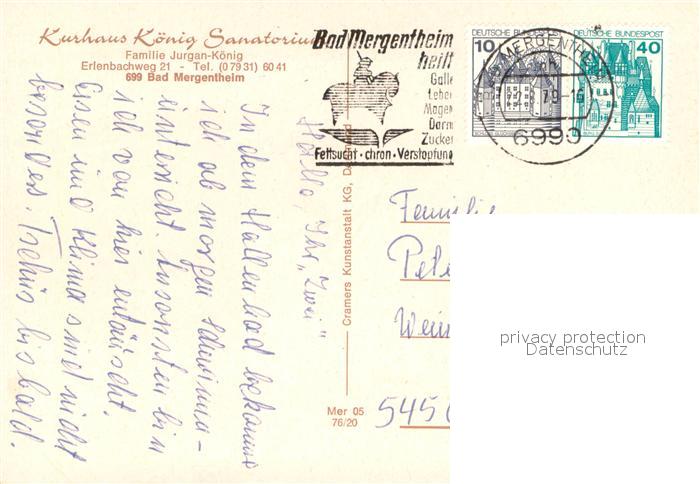 Kurhaus König Sanatorium
Familie Jurgan-König
Erlenbachweg 21 - Tel. (0 79 31) 60 41
699 Bad Mergentheim
Bad Mergentheim
heilt
Galle
Leber
Magen
Darm
Zucker
Fettsucht · chron · Verstopfung
DEUTSCHE BUNDESPOST
10
DEUTSCHE BUNDESPOST
40
MERGENTH
6990
Hallo, Ihr "Zwei"
In dem Hallenbad bekomme
ich ab morgen Schwimm-
unterricht. Ansonsten bin
ich von hier enttäuscht.
Essen und Klima sind nicht
besonders. Tschüs bis bald.
Cramers Kunstanstalt KG, Dortmund
Mer 05
76/20
Familie
Pete
Wein
545
privacy protection
Datenschutz